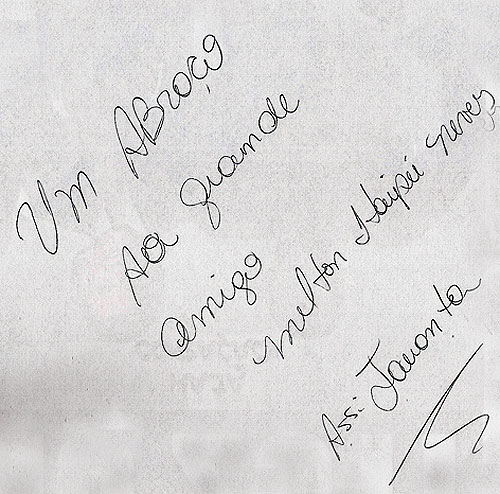 Um ABraço
Ao grande
amigo
milton Haipé neves
Ass: Javonta